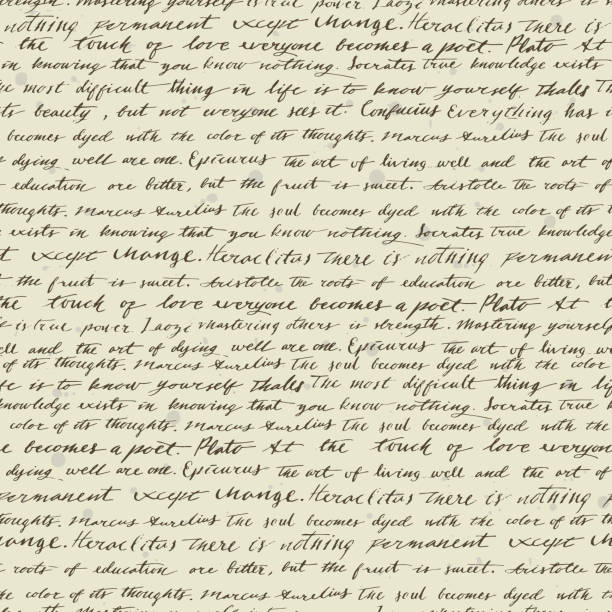 strength. Mastering yourself is true power Laozi Mastering others is
nothing permanent except change. Heraclitus There is
t the touch of love everyone becomes a poet. Plato At t
in knowing that you know nothing. Socrates True knowledge exists
he most difficult thing in life is to know yourself Thalls The
ts beauty, but not everyone sees it. Confucius Everything has i
becomes dyed with the color of its thoughts. Marcus Aurelius The soul
dying well are one. Epicurus The art of living well and the art of
education are bitter, but the fruit is sweet. Aristotle The roots of
thoughts. Marcus Aurelius The soul becomes dyed with the color of its t
e exists in knowing that you know nothing. Socrates True knowledge
t except change. Heraclitus There is nothing permanen
t the fruit is sweet. Aristotle The roots of education are bitter, but
the touch of love everyone becomes a poet. Plato At t
is true power Laozi Mastering others is strength. Mastering yourself
ell and the art of dying well are one. Epicurus The art of living w
of its thoughts. Marcus Aurelius The soul becomes dyed with the color
fe is to know yourself Thalls The most difficult thing in lif
knowledge exists in knowing that you know nothing. Socrates True
color of its thoughts. Marcus Aurelius The soul becomes dyed with the
e becomes a poet. Plato At the touch of love everyon
dying well are one. Epicurus The art of living well and the art of
permanent except change. Heraclitus There is nothing p
thoughts. Marcus Aurelius The soul becomes dyed with the color of its th
hange. Heraclitus There is nothing permanent except ch
roots of education are bitter, but the fruit is sweet. Aristotle The
he color of its thoughts. Marcus Aurelius The soul becomes dyed with the
strength. Mastering yourself is true power Laozi Mastering others is